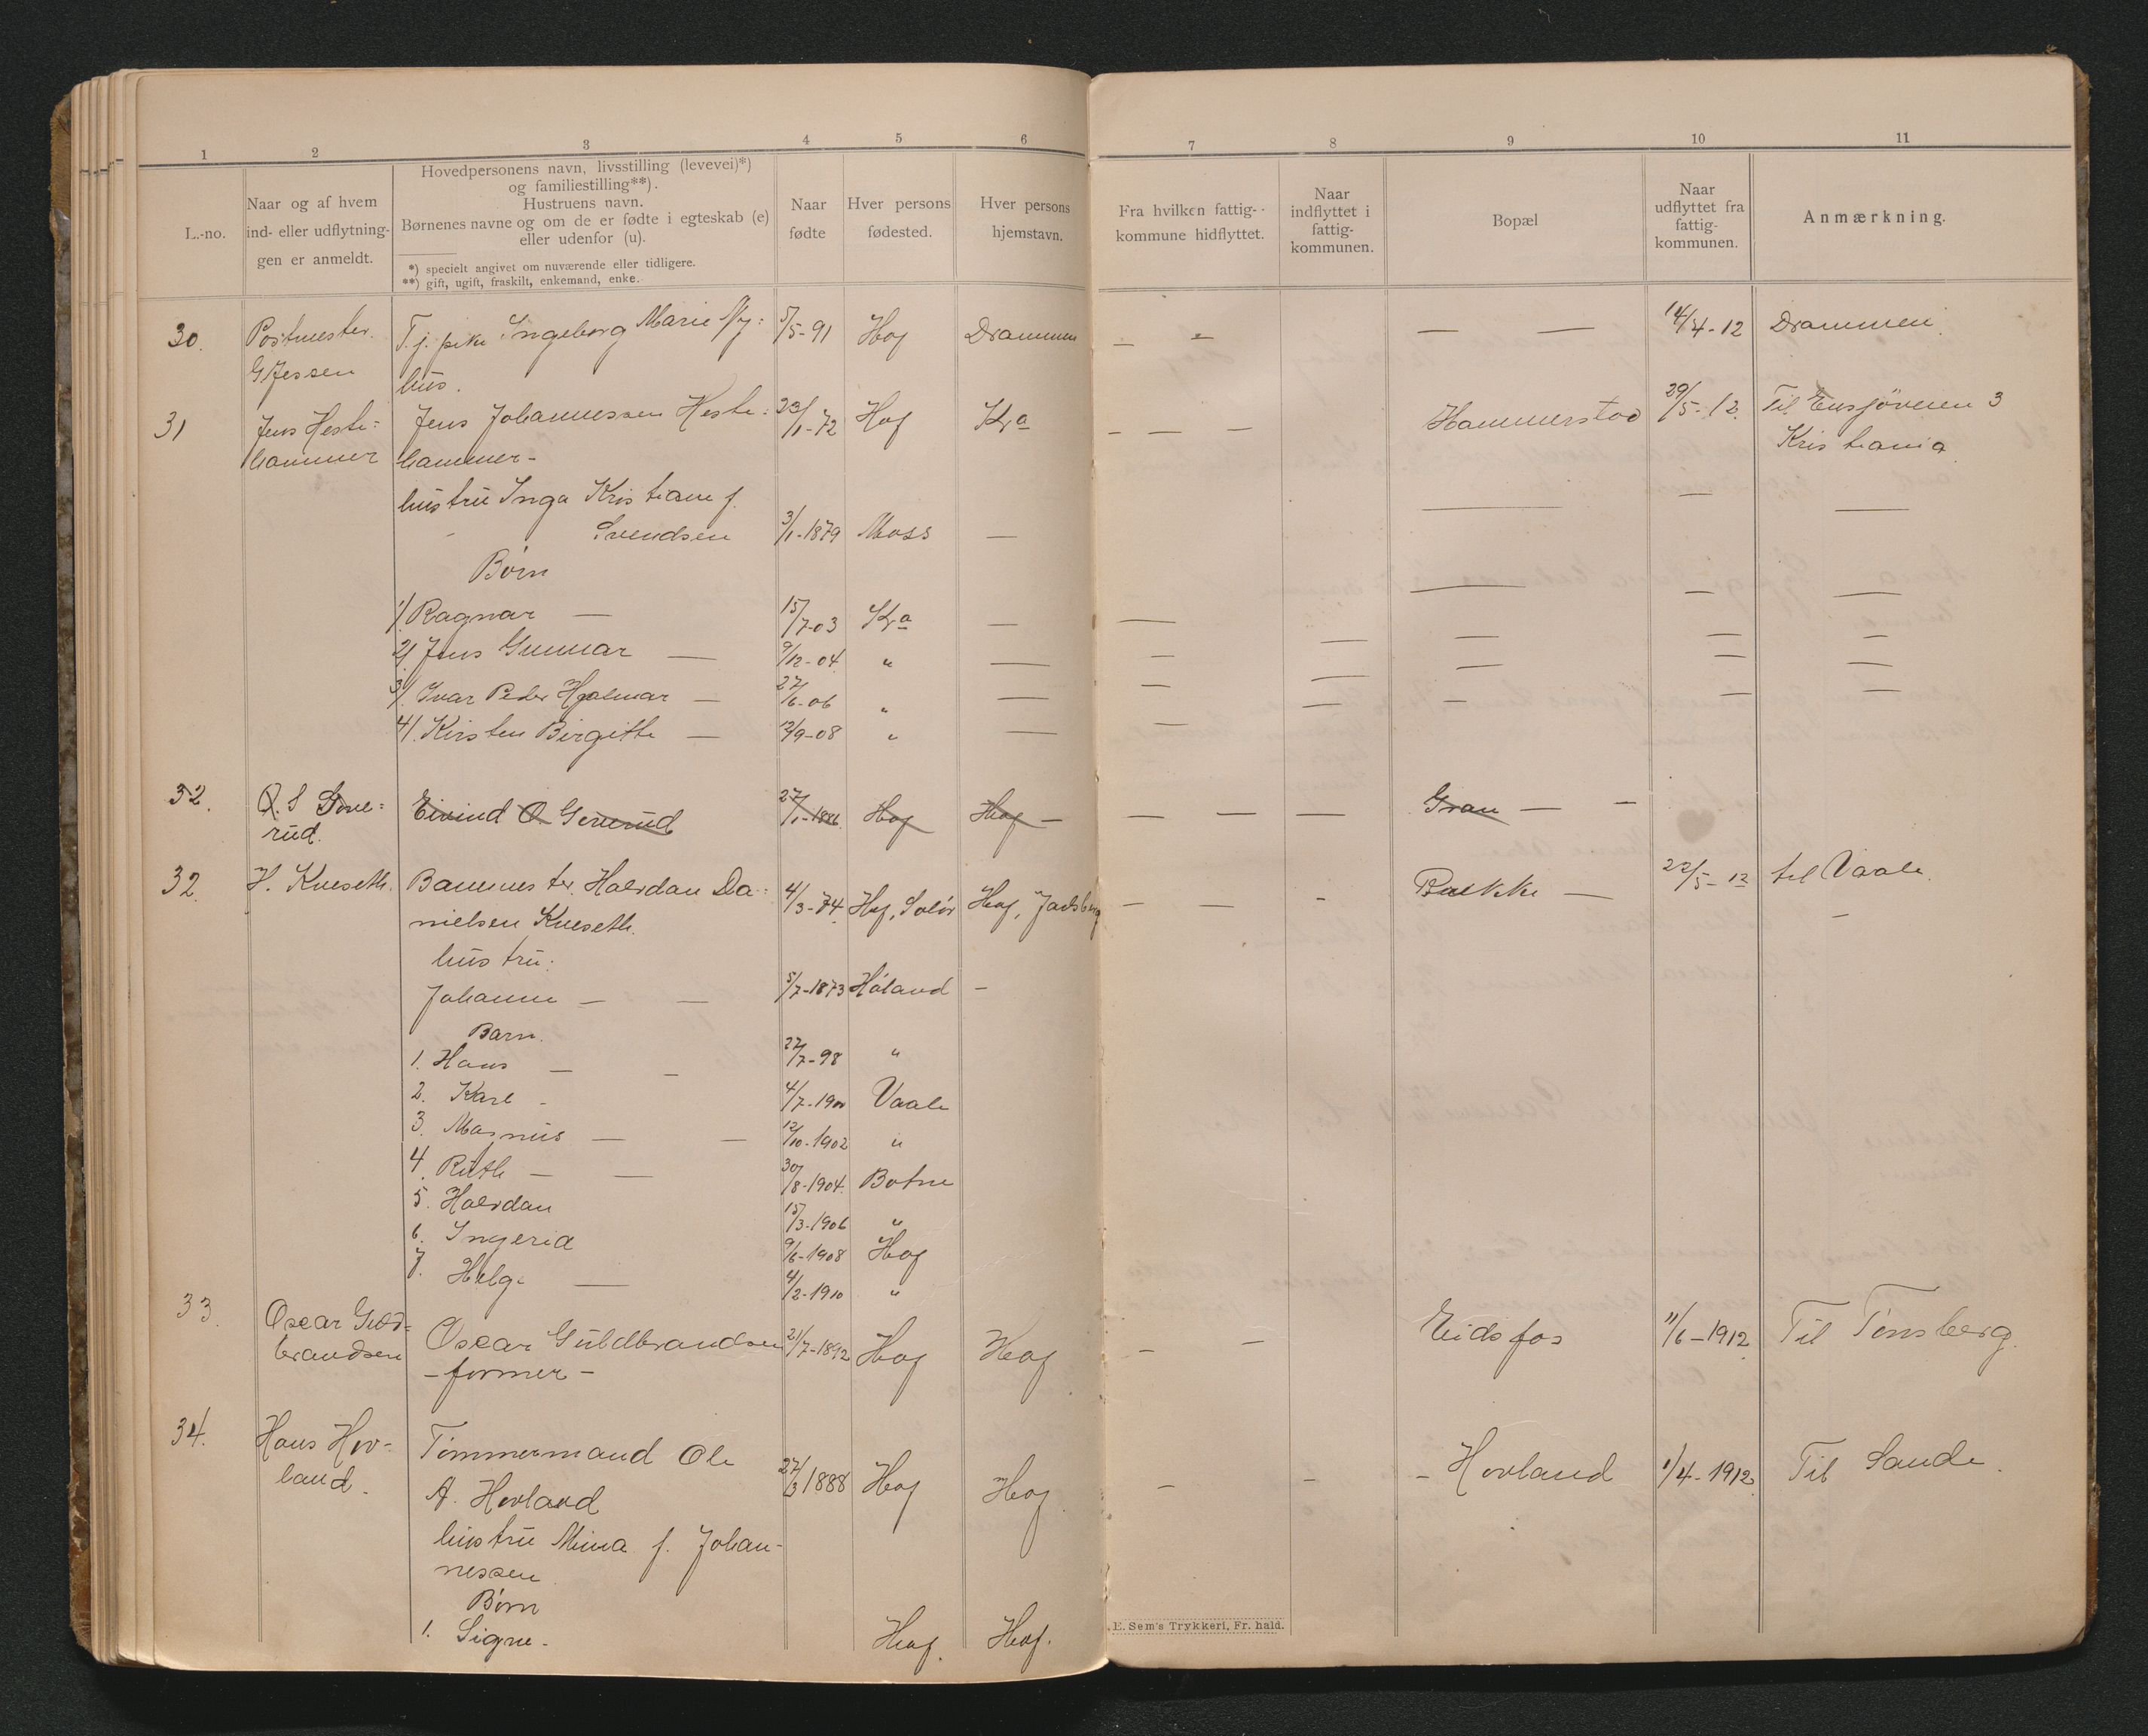 1 2 3 4 5 6 7 8 9 10 11
L.-no.
Naar og af hvem
ind- eller udflytning-
gen er anmeldt.
Hovedpersonens navn, livsstilling (levevei)*)
og familiestilling**).
Hustruens navn.
Børnenes navne og om de er fødte i egteskab (e)
eller udenfor (u).
*) specielt angivet om nuværende eller tidligere.
**) gift, ugift, fraskilt, enkemand, enke.
Naar
fødte
Hver persons
fødested.
Hver persons
hjemstavn.
Fra hvilken fattig-
kommune hidflyttet.
Naar
indflyttet i
fattig-
kommunen.
Bopæl
Naar
udflyttet fra
fattig-
kommunen.
Anmærkning.
30. Postmester T.j. pike Ingeborg Marie Ny= 5/5-91 Hof Drammen — — — — 14/4-12 Drammen.
G Jessen hus.
31 Jens Heste= Jens Johannessen Heste= 23/1-72 Hof Kra - — — Hammerstad 29/5-12. Til Ensjöveien 3
hammer hammer - Kristiania
hustru Inga Kristiane f. — — —
Svendsen 3/1-1879 Moss —
Børn
1/ Ragnar — 15/7-03 Kra — — — — —
2/ Jens Gunnar — 9/12-04 " — — — — — —
3/. Ivar Peder Hjalmar — 27/6-06 " — — — — — —
4/. Kirsten Birgitte — 12/9-08 " — — — — — —
32. O. S Gove= Eivind O. Goverud 27/1-1886 Hof Hof — — — — Gran — -
rud.
32. H. Kneseth. Banemester Halvdan Da= 4/3-74 Hof, Solør Hof, Jarlsberg - — - Bakke — 22/5-12 til Vaale.
nielsen Kneseth. -
hustru:
Johanne — — 5/7-1873 Høland -
Barn.
1. Hans — - 27/7-98 "
2. Karl - 4/7-1900 Vaale
3. Magnus — — 12/10-1902 "
4. Ruth — — 30/8-1904 Botne
5. Halvdan 15/3-1906 "
6. Ingerid 9/6-1908 Hof
7. Helge — 4/2-1910 "
33. Oscar Guld= Oscar Guldbrandsen 21/7-1892 Hof Hof - — Eidsfos 11/6-1912 Til Tønsberg.
brandsen - former -
34. Hans Hov- Tømmermand Ole 27/3 1888 Hof Hof - - - Hovland 1/4-1912. Til Sande.
land. A. Hovland
hustru Mina f. Johan-
nessen
Børn
1. Signe - Hof. Hof.
E. Sem's Trykkeri, Fr. hald.